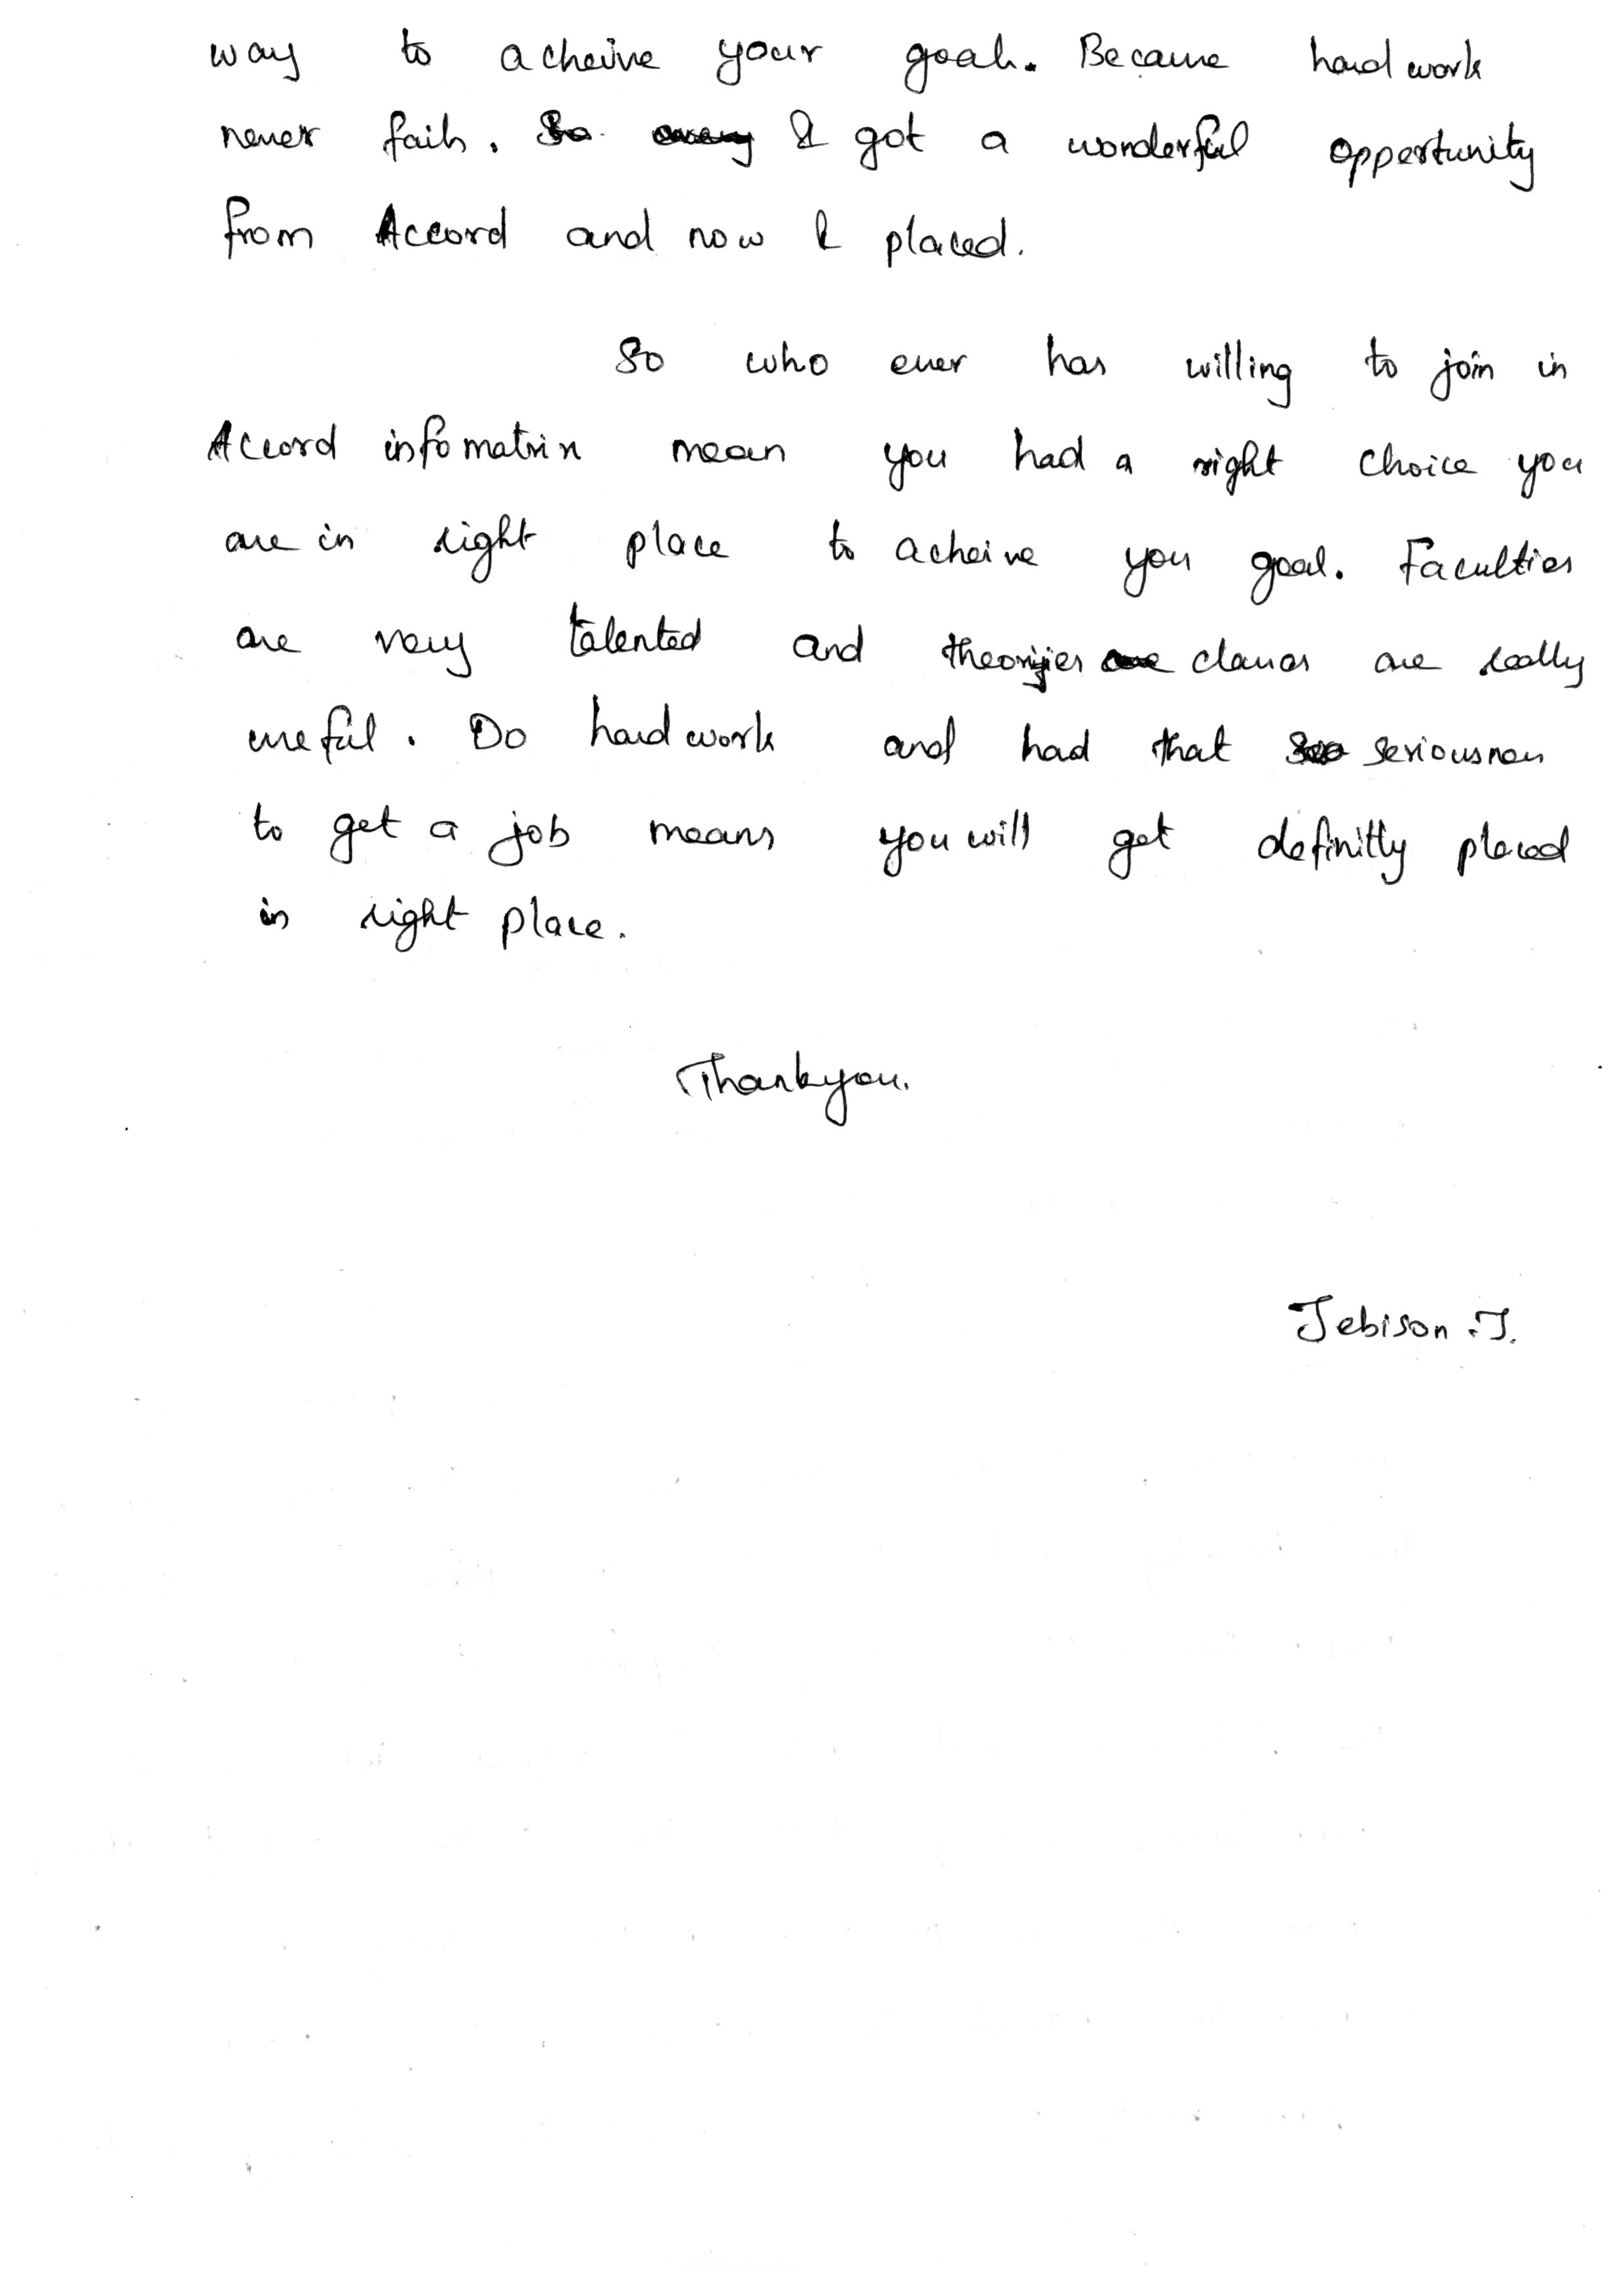 way to acheive your goals. Because hard work
never fails. I got a wonderful oppertunity
from Accord and now I placed.
So who ever has willing to join in
Accord infomatrix mean you had a right choice you
are in right place to acheive you goal. Faculties
are very talented and theoryies classes are really
useful. Do hard work and had that seriousness
to get a job means you will get definitly placed
in right place.
Thankyou.
Jebison .J.